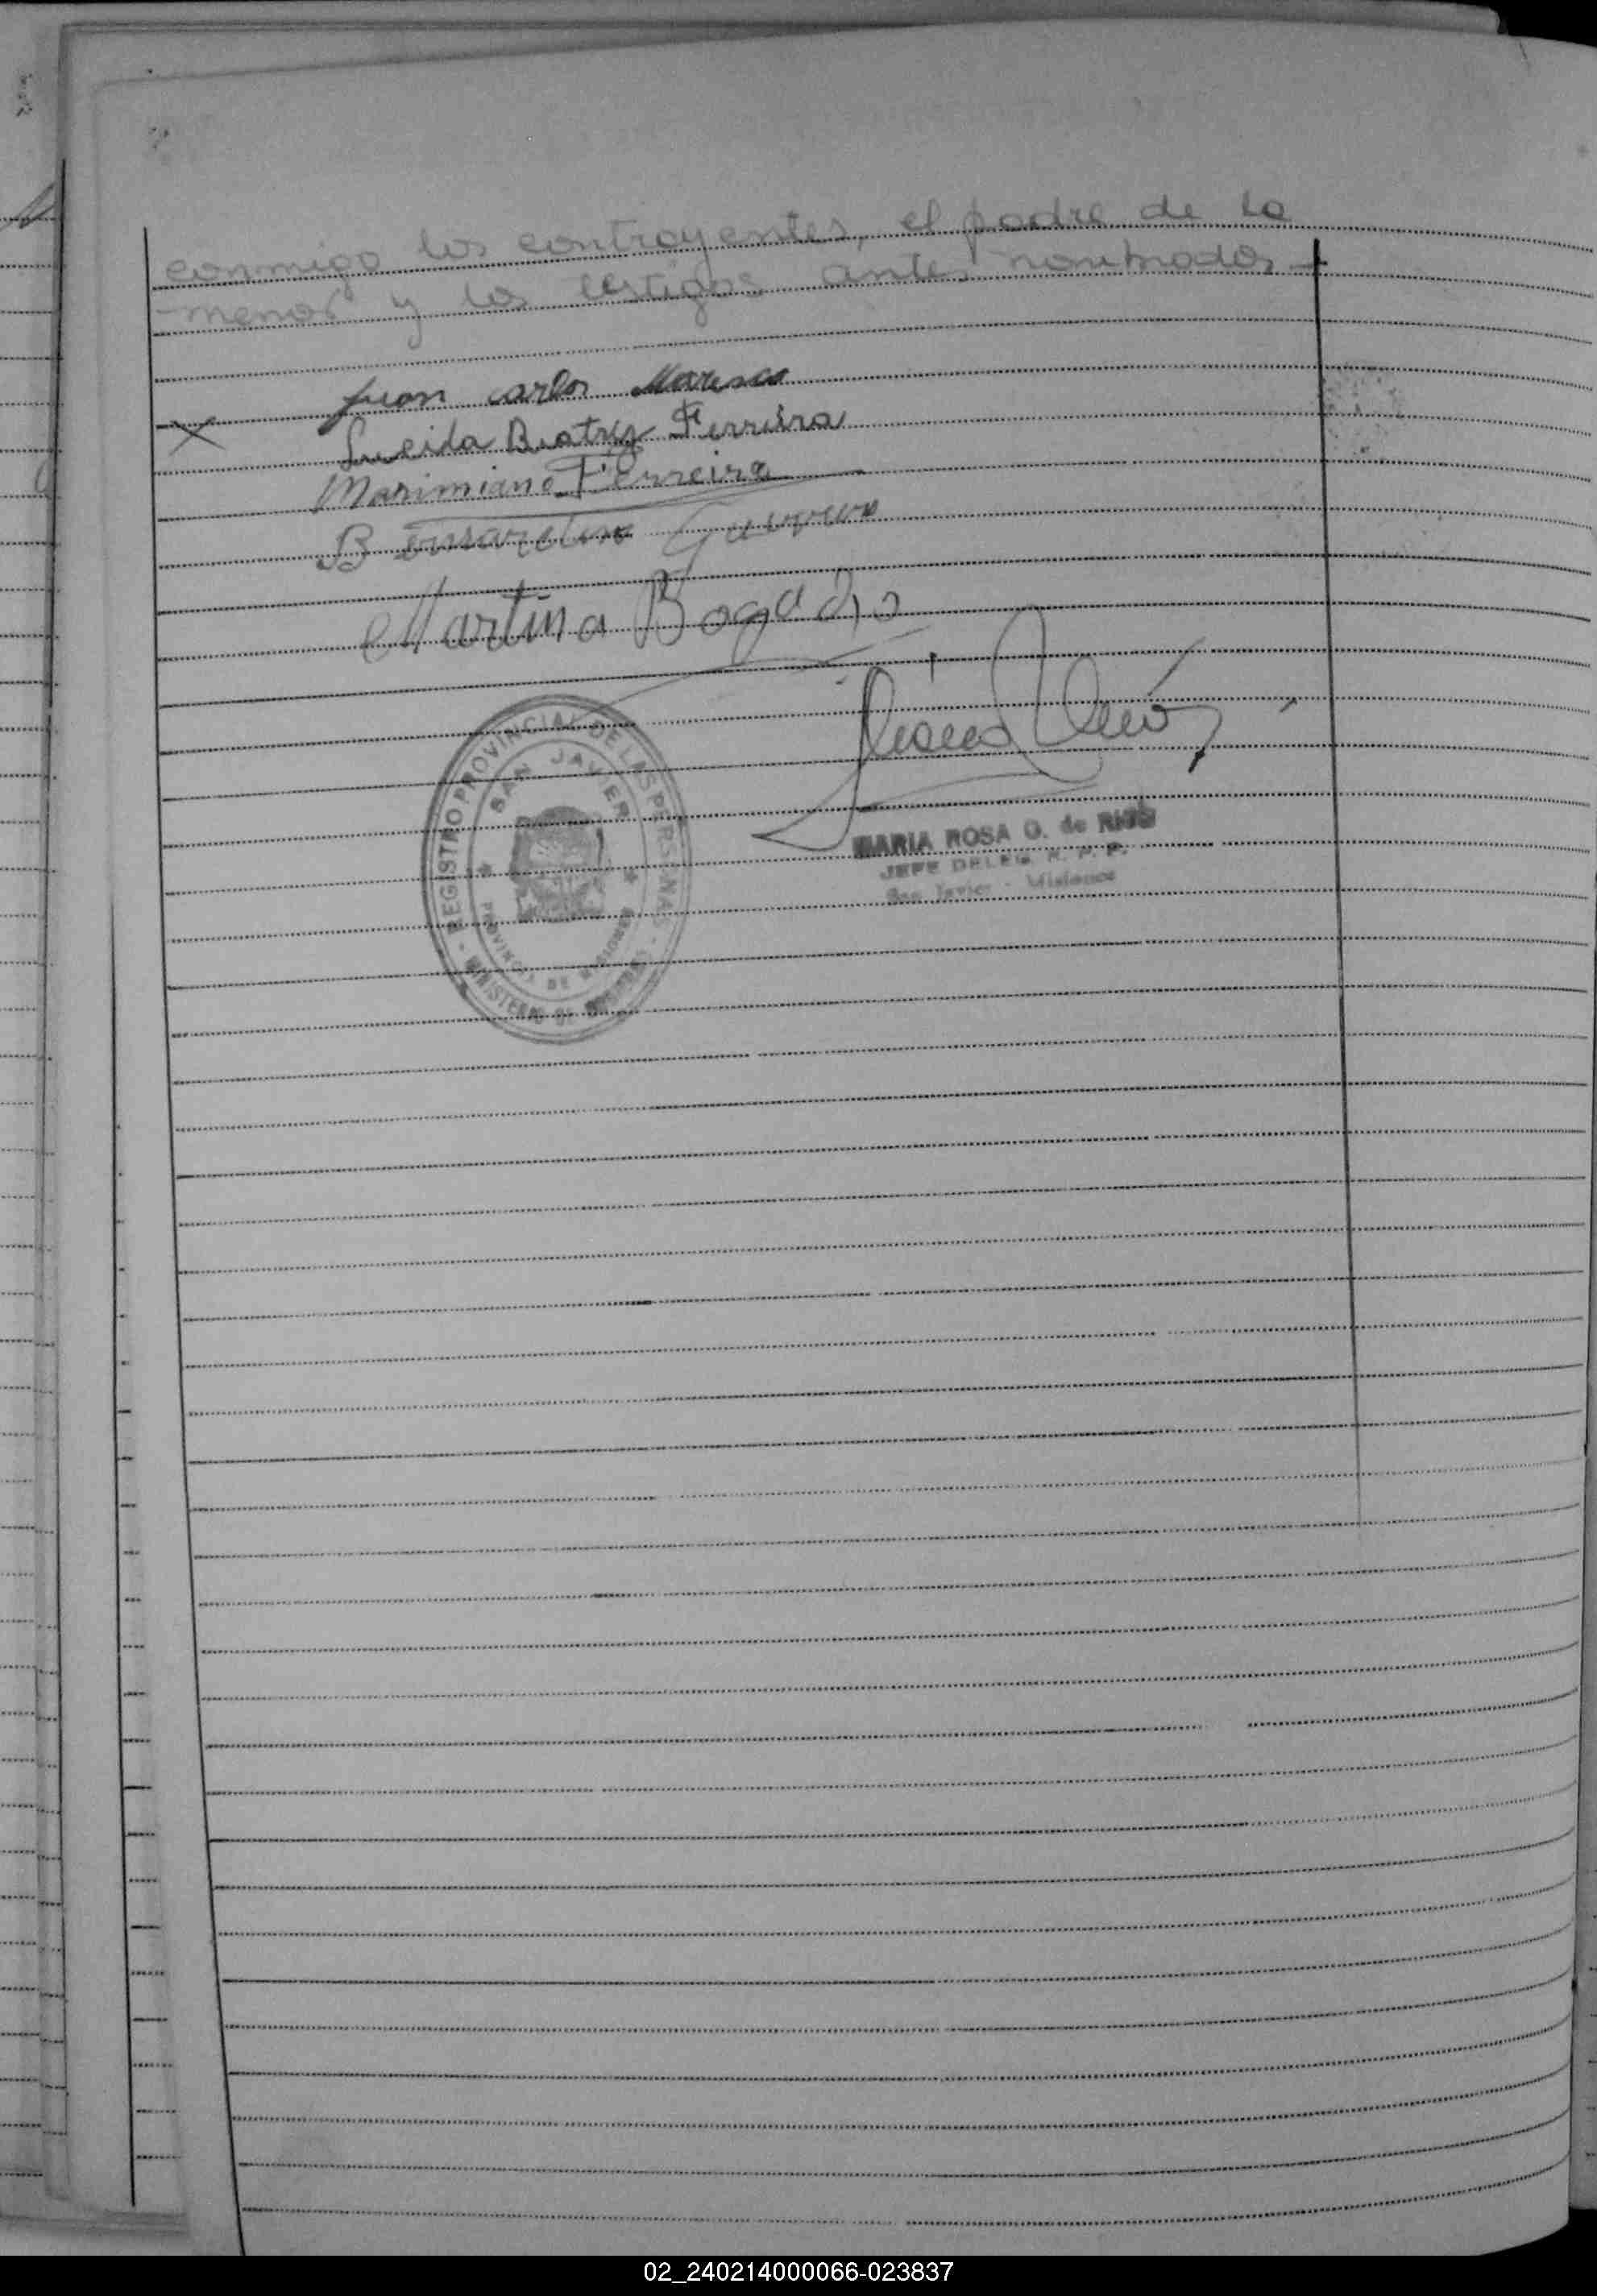 conmigo los contrayentes, el padre de la
menor y los testigos antes nombrados.-
Juan Carlos Maresco
Lueida Beatriz Ferreira
Marimiano Ferreira
Bernardino
Martina Bogado
REGISTRO PROVINCIAL DE LAS PERSONAS
SAN JAVIER
PROVINCIA DE MISIONES
MINISTERIO DE
MARIA ROSA G. de RIOS
JEFE DELEG. R. P. P.
San Javier - Misiones
02_240214000066-023837